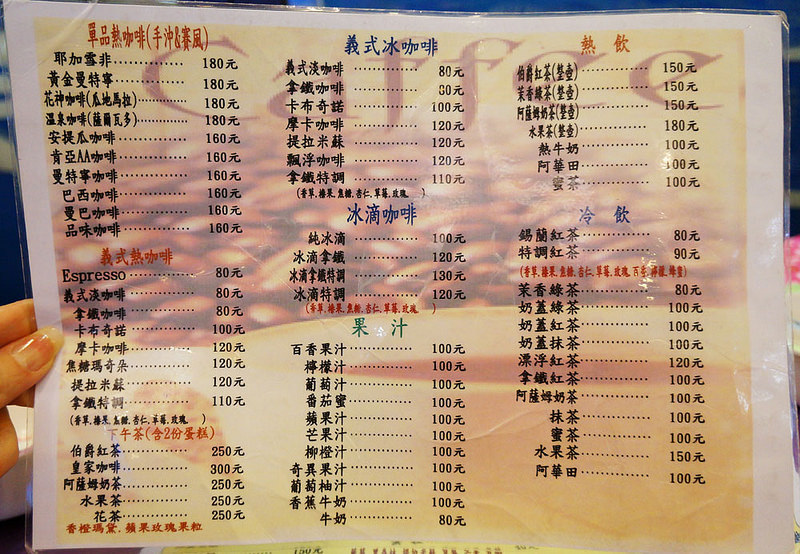 Caffee
單品熱咖啡(手沖&賽風)
耶加雪非 180元
黃金曼特寧 180元
花神咖啡(瓜地馬拉) 180元
溫泉咖啡(薩爾瓦多) 180元
安提瓜咖啡 160元
肯亞AA咖啡 160元
曼特寧咖啡 160元
巴西咖啡 160元
曼巴咖啡 160元
品味咖啡 160元
義式熱咖啡
Espresso 80元
義式淡咖啡 80元
拿鐵咖啡 80元
卡布奇諾 100元
摩卡咖啡 120元
焦糖瑪奇朵 120元
提拉米蘇 120元
拿鐵特調 110元
(香草,榛果,焦糖,杏仁,草莓,玫瑰 )
下午茶(含2份蛋糕)
伯爵紅茶 250元
皇家咖啡 300元
阿薩姆奶茶 250元
水果茶 250元
花茶 250元
香橙瑪黛,蘋果玫瑰果粒
義式冰咖啡
義式淡咖啡 80元
拿鐵咖啡 80元
卡布奇諾 100元
摩卡咖啡 120元
提拉米蘇 120元
飄浮咖啡 120元
拿鐵特調 110元
(香草,榛果,焦糖,杏仁,草莓,玫瑰 )
冰滴咖啡
純冰滴 100元
冰滴拿鐵 120元
冰滴拿鐵特調 130元
冰滴特調 120元
(香草,榛果,焦糖,杏仁,草莓,玫瑰 )
果汁
百香果汁 100元
檸檬汁 100元
葡萄汁 100元
番茄蜜 100元
蘋果汁 100元
芒果汁 100元
柳橙汁 100元
奇異果汁 100元
葡萄柚汁 100元
香蕉牛奶 100元
牛奶 80元
熱飲
伯爵紅茶(整壺) 150元
茉香綠茶(整壺) 150元
阿薩姆奶茶(整壺) 150元
水果茶(整壺) 180元
熱牛奶 100元
阿華田 100元
蜜茶 100元
冷飲
錫蘭紅茶 80元
特調紅茶 90元
(香草,榛果,焦糖,杏仁,草莓,玫瑰,百香,檸檬,蜂蜜)
茉香綠茶 80元
奶蓋綠茶 100元
奶蓋紅茶 100元
奶蓋抹茶 100元
漂浮紅茶 120元
拿鐵紅茶 100元
阿薩姆奶茶 100元
抹茶 100元
蜜茶 100元
水果茶 150元
阿華田 100元
150元